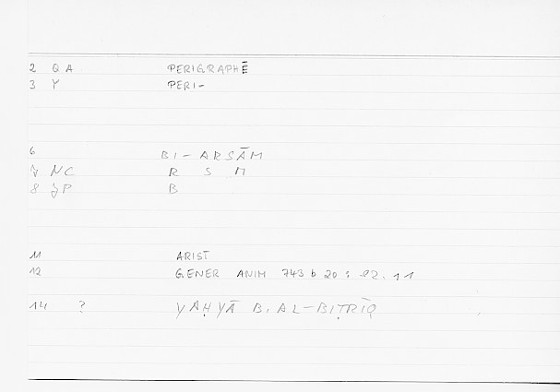 2 QA PERIGRAPHĒ
3 Y PERI-
6 BI-ARSĀM
7 NC R S M
8 JP B
11 ARIST
12 GENER ANIM 743 b 20 : 92.11
14 ? YAḤYĀ B. AL-BIṬRĪQ